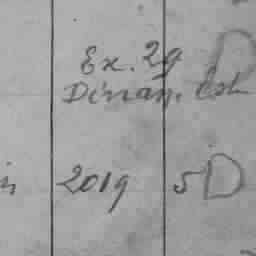 Ex. 29 D
Dinan. Est
is 2019 5 D